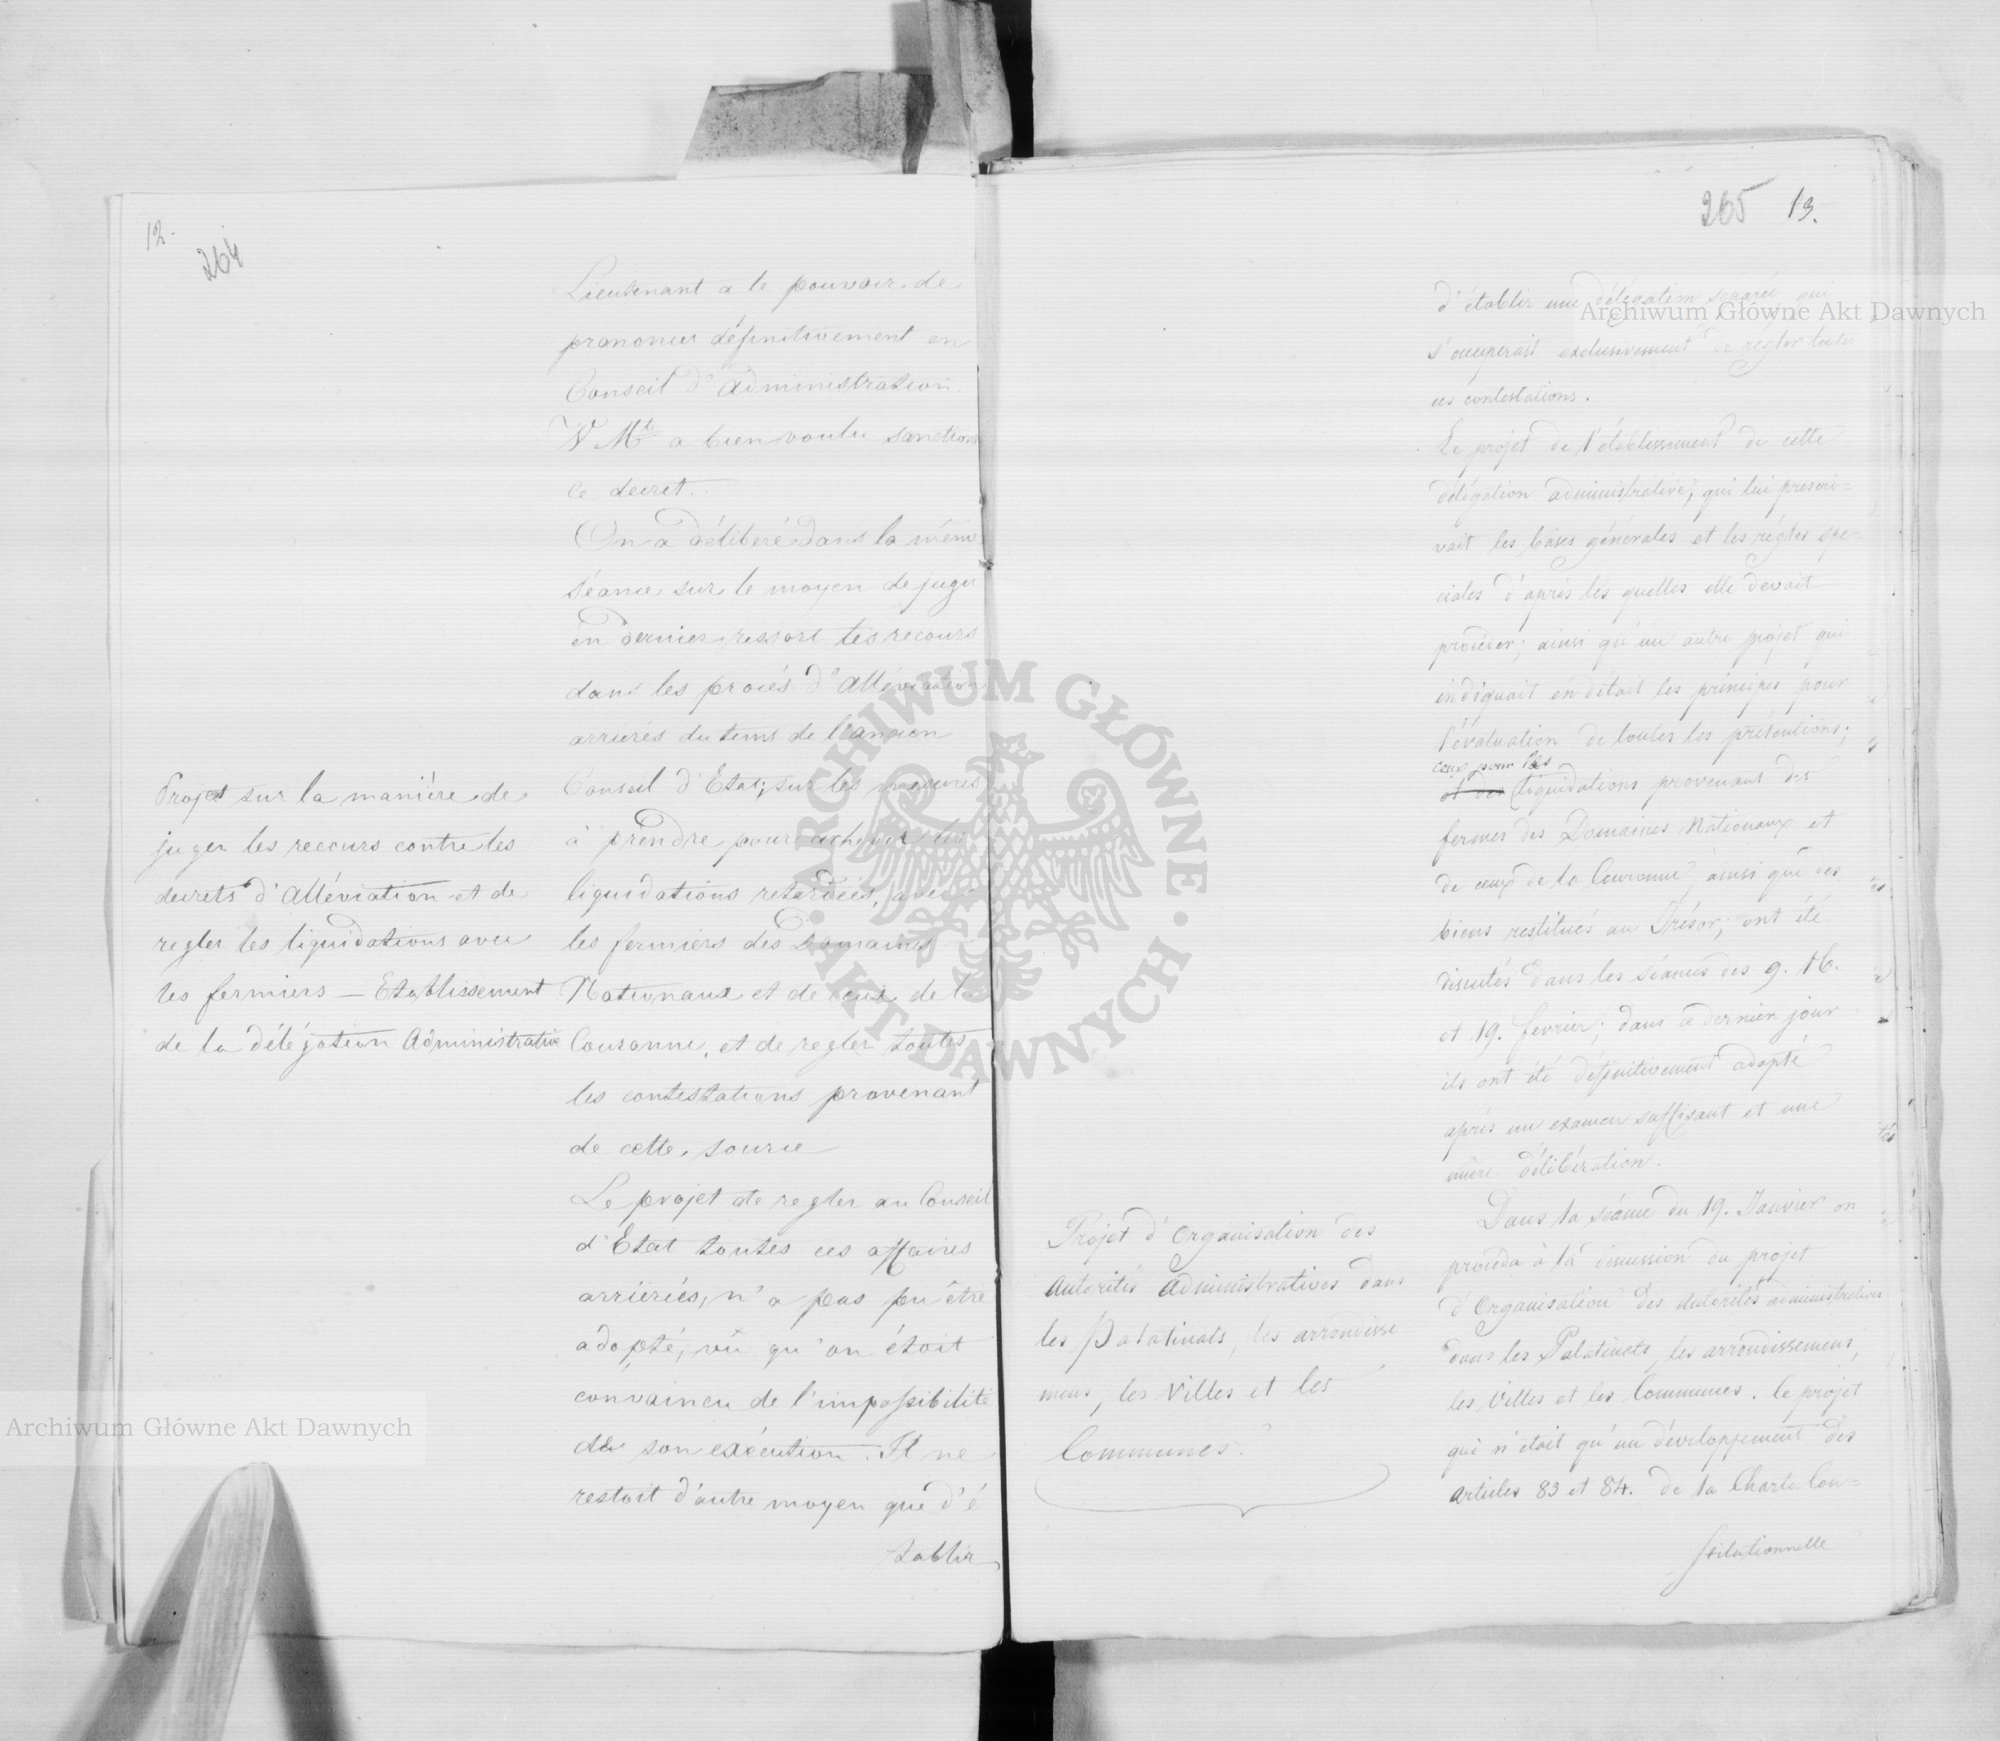 12.
264
Lieutenant a le pouvoir de
prononcer définitivement en
Conseil d'administration.
V Mté a bien voulu sanction
ce decret.
On a délibéré dans la même
séance sur le moyen de juger
en dernier ressort les recours
dans les procès d'Alléviation
arriérés du tems de l'ancien
Conseil d'Etat; sur les mesures
à prendre pour achever les
liquidations retardées, avec
les fermiers des Domaines
Nationaux et de ceux de la
Couronne, et de regler toutes
les contestations provenant
de cette source
Le projet de regler au Conseil
d'Etat toutes ces affaires
arriérées, n'a pas pu être
adopté; vû qu'on étoit
convaincu de l'impossibilité
de son exécution. Il ne
restoit d'autre moyen que d'é
tablir
Projet sur la manière de
juger les recours contre les
decrets d'Alléviation et de
regler les liquidations avec
les fermiers — Etablissement
de la délégation Administrative
265 13.
d'établir une délégation séparée, qui
s'occuperait exclusivement de régler toutes
ces contestations.
Le projet de l'établissement de cette
délégation administrative, qui lui prescri=
vait les bases générales et les régles spe-
ciales d'après les quelles elle devait
procéder; ainsi qu'un autre projet qui
indiquait en détail les principes pour
l'évaluation de toutes les prétentions;
ceux pour les
et des liquidations provenant des
fermes des Domaines Nationaux et
de ceux de la Couronne, ainsi que des
biens restitués au Trésor; ont été
discutés dans les séances des 9. 16.
et 19. fevrier; dans ce dernier jour
ils ont été définitivement adopté
après un examen suffisant et une
mûre délibération.
Dans la séance du 19. Janvier on
proceda à la discussion du projet
d'Organisation des Autorités administratives
dans les Palatinats, les arrondissemens,
les Villes et les Communes. Ce projet
qui n'était qu'un développement des
articles 83 et 84. de la Charte Con=
stitutionnelle
Projet d'Organisation des
Autorités Administratives dans
les Palatinats, les arrondisse-
mens, les Villes et les
Communes.
Archiwum Główne Akt Dawnych
Archiwum Główne Akt Dawnych
ARCHIWUM GŁÓWNE · AKT DAWNYCH ·